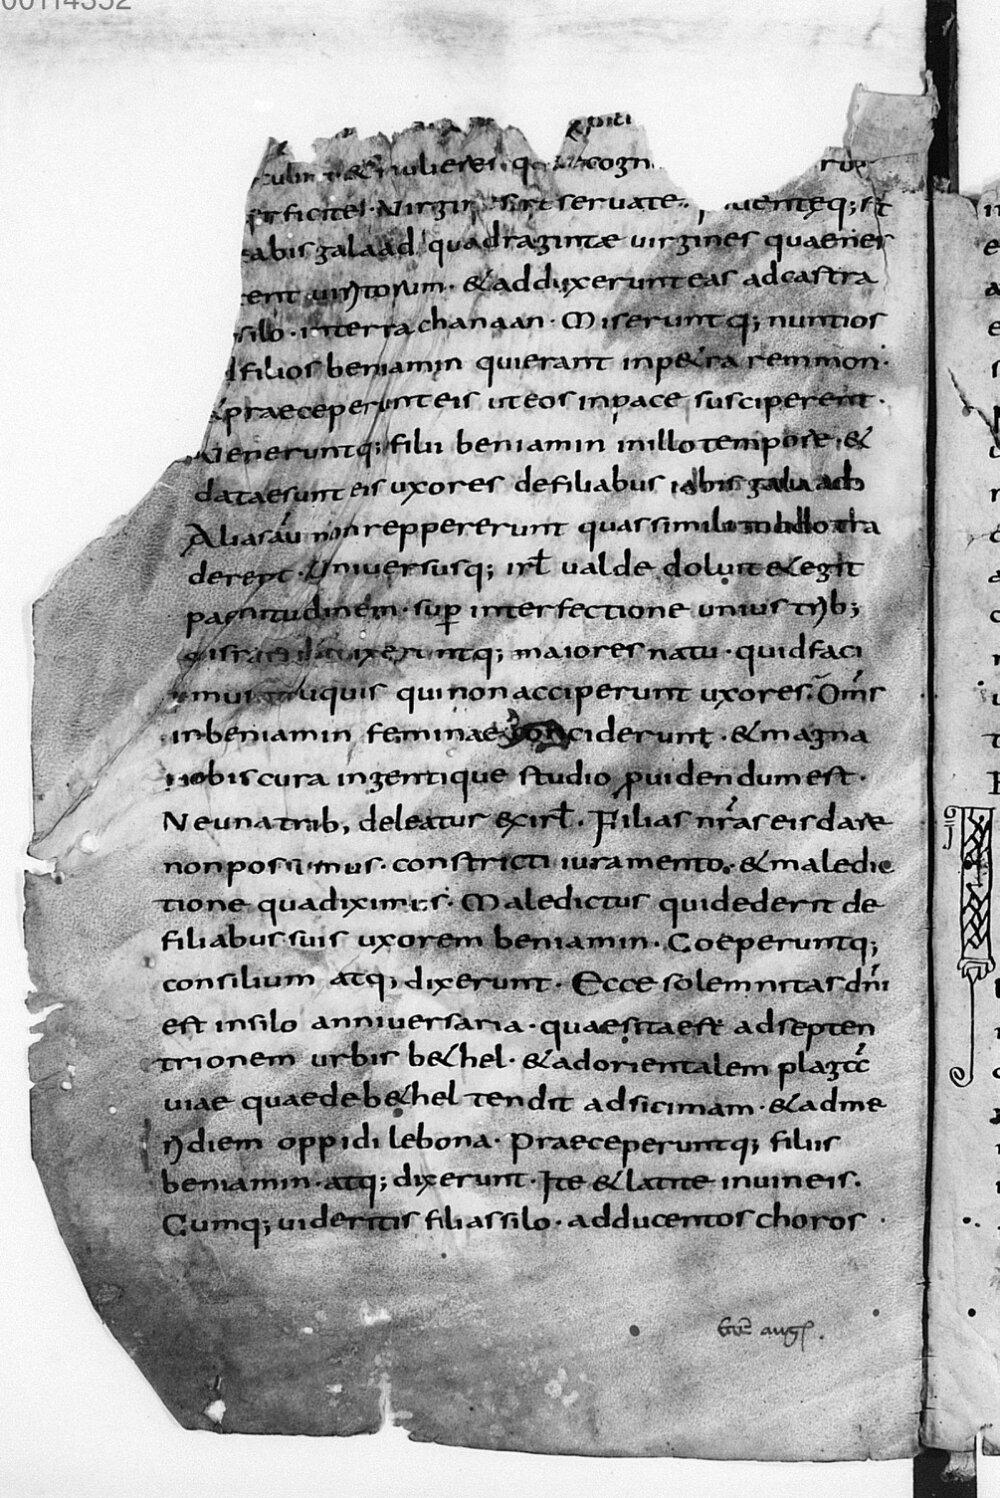 00114352
& mulieres q cogn
interficite · Virgines seruate · inuenteq; st
iabis galaad quadragintae uirgines quae nes
cierent uiri torum · & adduxerunt eas ad castra
silo · in terra chanaan · Miseruntq; nuntios
ad filios beniamin qui erant in petra remmon ·
& praeceperunt eis ut eos in pace susciperent ·
Ueneruntq; filii beniamin in illo tempore · &
datae sunt eis uxores de filiabus iabis galaad
Alias aū non reppererunt quas simili modo tra
derent · Uniuersusq; isrl ualde doluit & egit
paenitudinem · sup interfectione unius trib;
dixeruntq; maiores natu · quid faci
mus reliquis qui non acceperunt uxores · Om̄s
in beniamin feminae conciderunt · & magna
nobis cura ingentique studio puidendum est ·
Ne una trib; deleatur ex isrl · Filias nr̄as eis dare
non possumus · constricti iuramento · & maledic
tione qua diximus · Maledictus qui dederit de
filiabus suis uxorem beniamin · Coeperuntq;
consilium atq; dixerunt · Ecce solemnitas dn̄i
est in silo anniuersaria · quae sita est ad septen
trionem urbis bethel · & ad orientalem plagā
uiae quae de bethel tendit ad sicimam · & ad me
ridiem oppidi lebona · Praeceperuntq; filiis
beniamin · atq; dixerunt · Ite & latite in uineis ·
Cumq; uideritis filias silo · ad ducentos choros ·